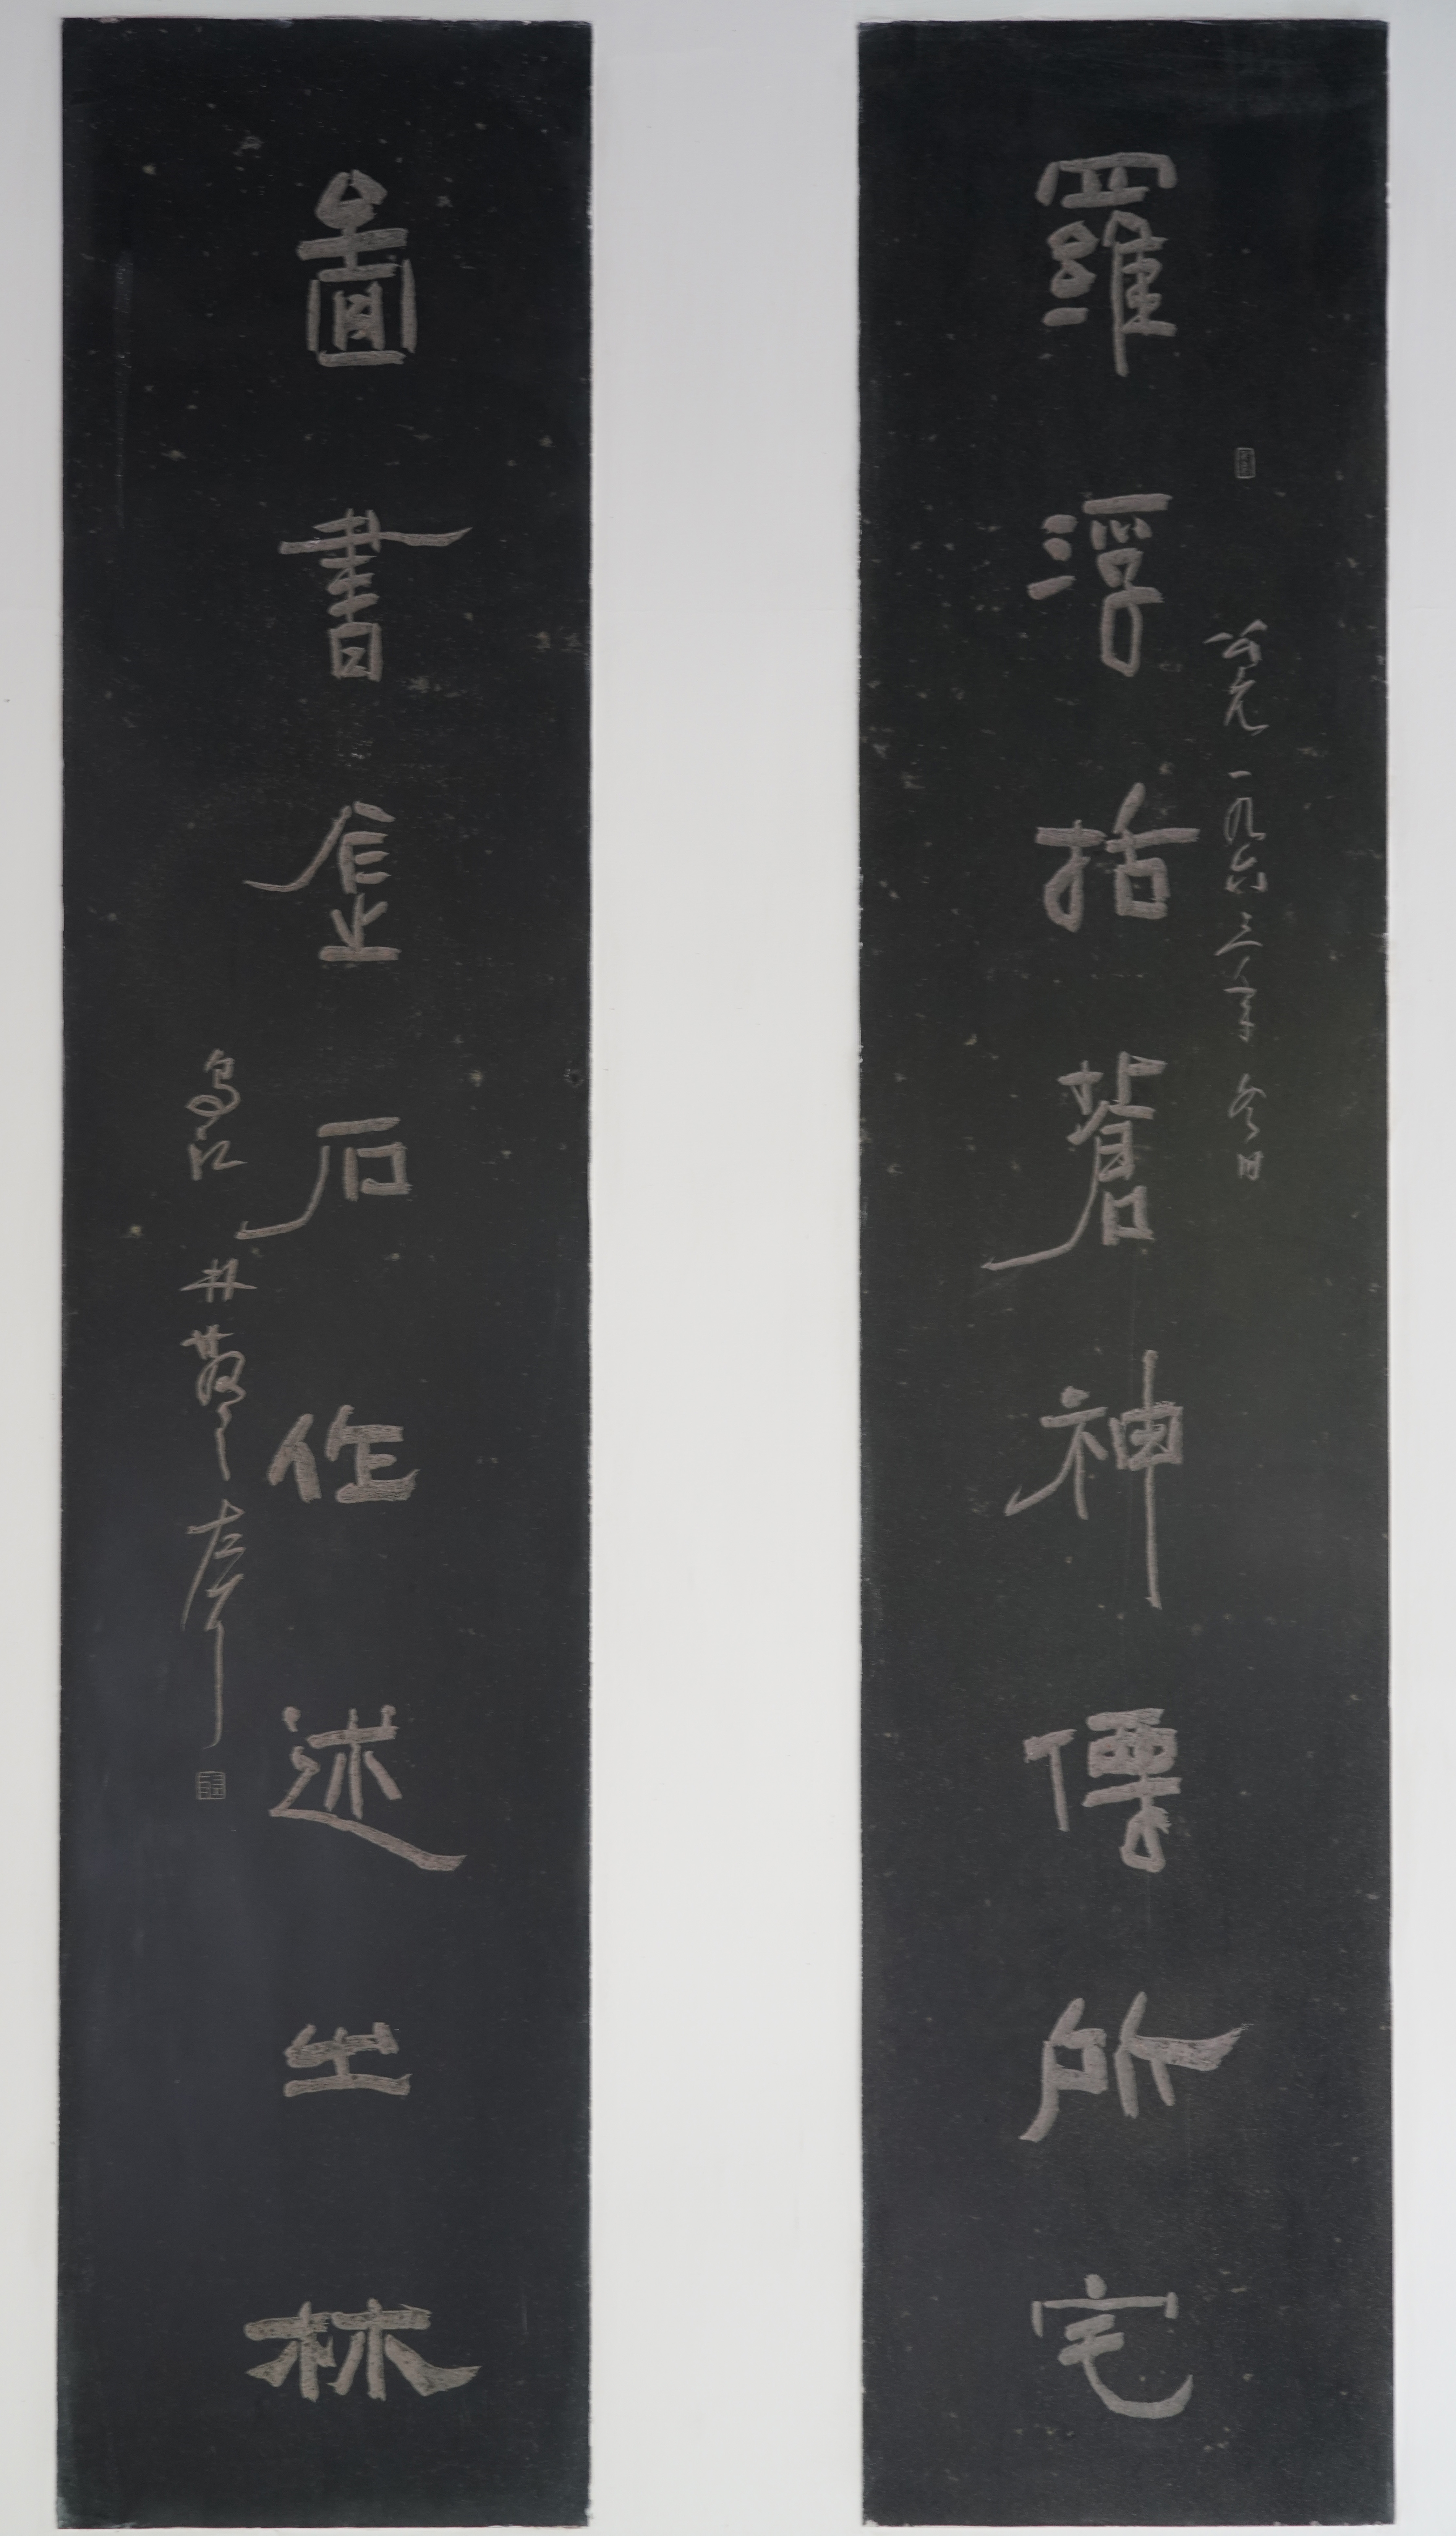 羅浮括蒼神僊所宅
公元一九六三年冬日
圖書金石作述之林
烏江林散之左耳